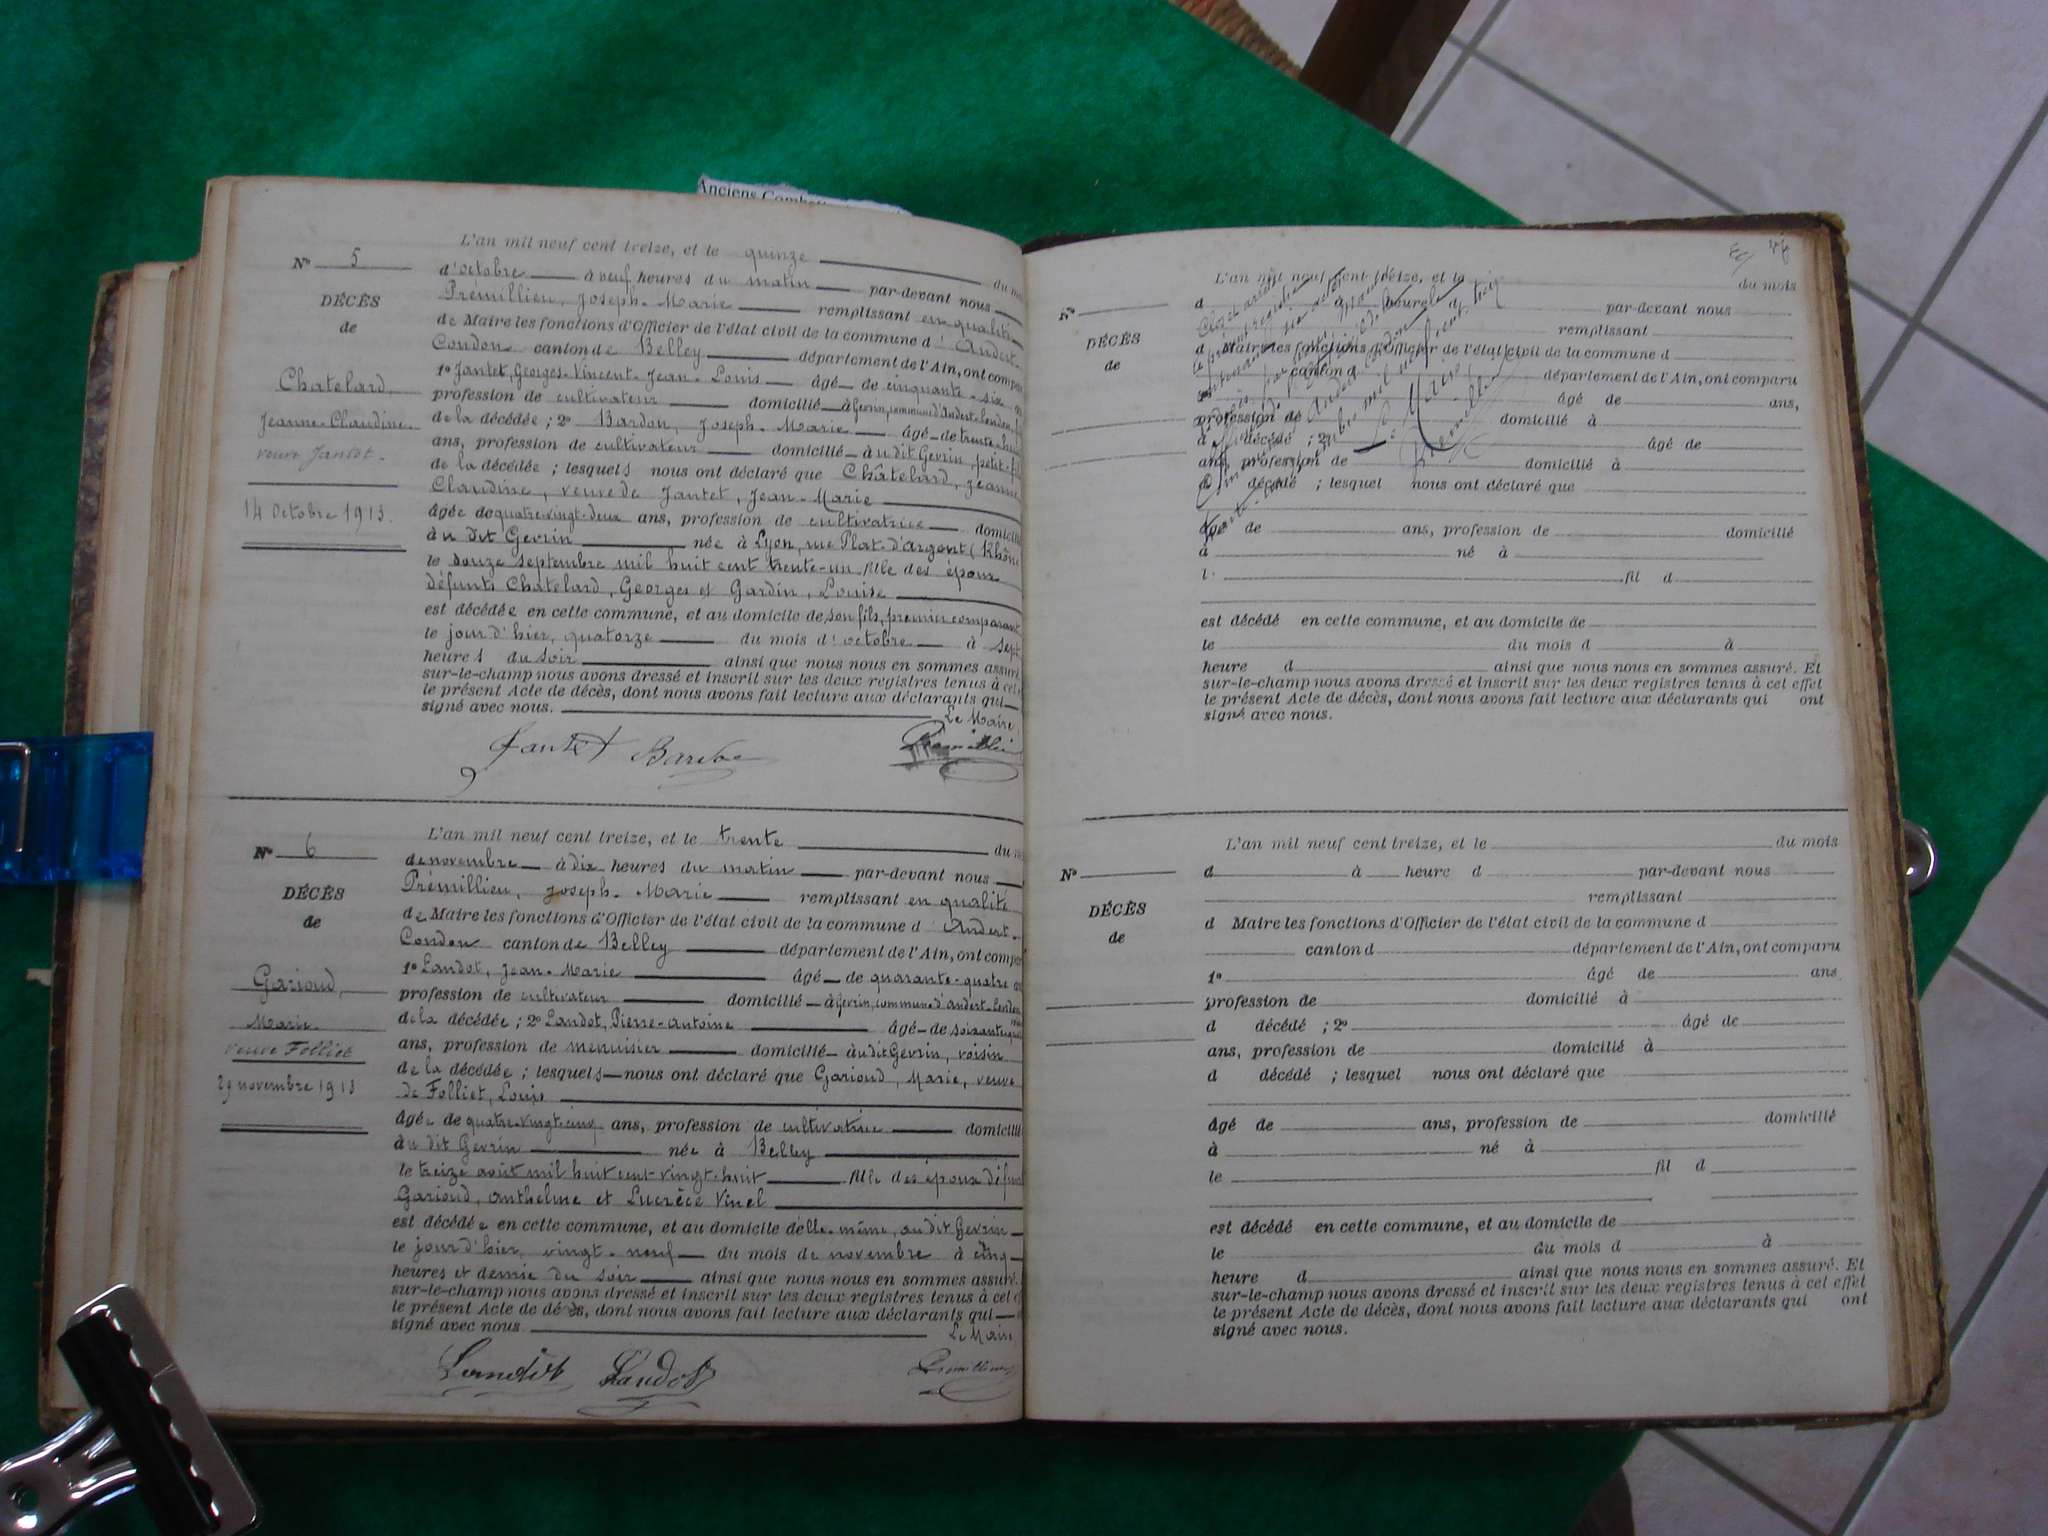 Anciens Combatt
L'an mil neuf cent treize, et le quinze du m
N° 5
d'octobre à neuf heures du matin par-devant nous
DÉCÈS
Prémillieu, Joseph-Marie remplissant en qualité
de
de Maire les fonctions d'Officier de l'état civil de la commune d'Andert-
Condon canton de Belley département de l'Ain, ont compar
Chatelard,
1° Jantet, Georges-Vincent-Jean-Louis âgé de cinquante-six
profession de cultivateur domicilié à Gevrin, commune d'Andert-Condon,
Jeanne-Claudine
de la décédée ; 2° Bardon, Joseph-Marie âgé de trente-huit
veuve Jantet
ans, profession de cultivateur domicilié au dit Gevrin, petit-fi
de la décédée ; lesquels nous ont déclaré que Châtelard, Jeanne
Claudine, veuve de Jantet, Jean-Marie
14 Octobre 1913.
âgée de quatre-vingt-deux ans, profession de cultivatrice domicilié
au dit Gevrin née à Lyon, rue Plat-d'Argent (Rhône
le douze septembre mil huit cent trente-un fille des époux
défunts Chatelard, Georges et Gardin, Louise
est décédée en cette commune, et au domicile de son fils, premier comparant
le jour d'hier, quatorze du mois d'octobre à sept
heures du soir ainsi que nous nous en sommes assuré.
sur-le-champ nous avons dressé et inscrit sur les deux registres tenus à cet e
le présent Acte de décès, dont nous avons fait lecture aux déclarants qui
signé avec nous. Le Maire,
Jantet
L'an mil neuf cent treize, et le trente du m
N° 6
de novembre à dix heures du matin par-devant nous
DÉCÈS
Prémillieu, Joseph-Marie remplissant en qualité
de
de Maire les fonctions d'Officier de l'état civil de la commune d'Andert-
Condon canton de Belley département de l'Ain, ont compar
Garioud,
1° Landot, Jean-Marie âgé de quarante-quatre an
profession de cultivateur domicilié à Gevrin, commune d'Andert-Condon
Marie
de la décédée ; 2° Landot, Pierre-Antoine âgé de soixante
veuve Folliet
ans, profession de menuisier domicilié au dit Gevrin, voisin
de la décédée ; lesquels nous ont déclaré que Garioud, Marie, veuve
29 novembre 1913
de Folliet, Louis
âgée de quatre-vingt-cinq ans, profession de cultivatrice domicilié
au dit Gevrin née à Belley
le treize août mil huit cent vingt-huit fille des époux défun
Garioud, Anthelme et Lucrèce Vinel
est décédée en cette commune, et au domicile d'elle-même, au dit Gevrin
le jour d'hier, vingt-neuf du mois de novembre à cinq
heures et demie du soir ainsi que nous nous en sommes assuré.
sur-le-champ nous avons dressé et inscrit sur les deux registres tenus à cet e
le présent Acte de décès, dont nous avons fait lecture aux déclarants qui
signé avec nous. Le Maire
Landot Landot
L'an mil neuf cent treize, et le du mois
N°
d par-devant nous
DÉCÈS
remplissant
de
d Maire les fonctions d'Officier de l'état civil de la commune d
canton d département de l'Ain, ont comparu
âgé de ans,
profession de domicilié à
d décédé ; 2° âgé de
ans, profession de domicilié à
d décédé ; lesquel nous ont déclaré que
âgé de ans, profession de domicilié
à né à
l fil d
est décédé en cette commune, et au domicile de
le du mois d à
heure d ainsi que nous nous en sommes assuré. Et
sur-le-champ nous avons dressé et inscrit sur les deux registres tenus à cet effet
le présent Acte de décès, dont nous avons fait lecture aux déclarants qui ont
signé avec nous.
L'an mil neuf cent treize, et le du mois
N°
d à heure d par-devant nous
DÉCÈS
remplissant
de
d Maire les fonctions d'Officier de l'état civil de la commune d
canton d département de l'Ain, ont comparu
1° âgé de ans
profession de domicilié à
d décédé ; 2° âgé de
ans, profession de domicilié à
d décédé ; lesquel nous ont déclaré que
âgé de ans, profession de domicilié
à né à
le fil d
est décédé en cette commune, et au domicile de
le du mois d à
heure d ainsi que nous nous en sommes assuré. Et
sur-le-champ nous avons dressé et inscrit sur les deux registres tenus à cet effet
le présent Acte de décès, dont nous avons fait lecture aux déclarants qui ont
signé avec nous.